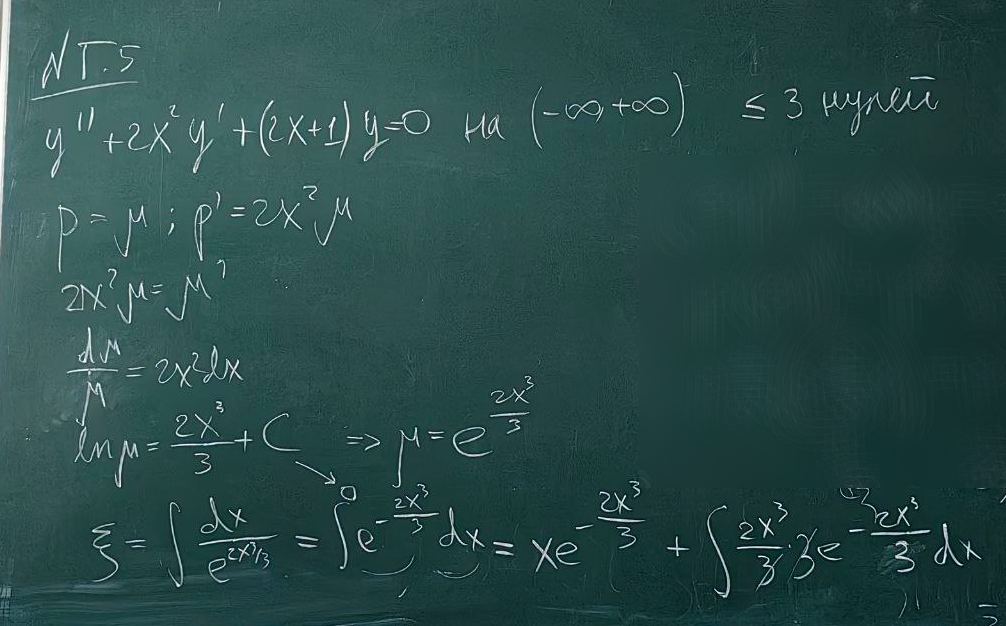 №Т.5
y'' + 2x² y' + (2x+1) y = 0 на (-∞, +∞) ≤ 3 нулей
p = μ ; p' = 2x² μ
2x² μ = μ'
dμ/μ = 2x² dx
ln μ = 2x³/3 + C ⇒ μ = e^(2x³/3)
0
ξ = ∫ dx/e^(2x³/3) = ∫ e^(-2x³/3) dx = x e^(-2x³/3) + ∫ 2x³/3 · 3 e^(-2x³/3) dx =